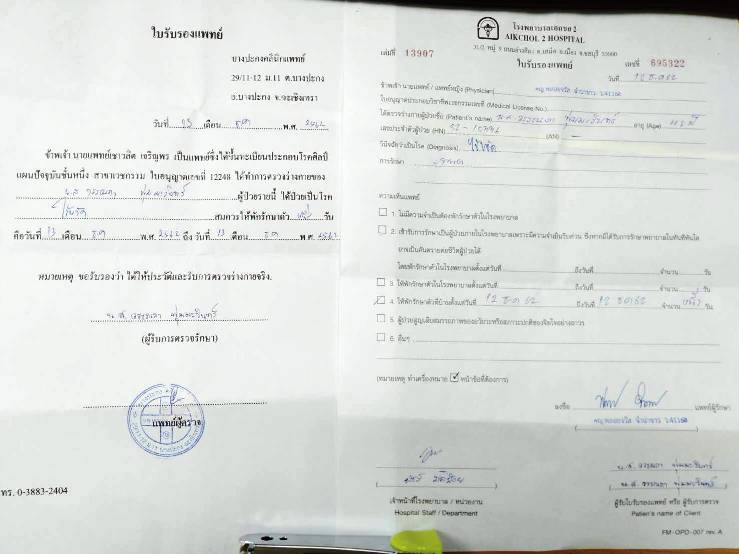 ใบรับรองแพทย์
บางปะกงคลินิกแพทย์
29/11-12 ม.11 ต.บางปะกง
อ.บางปะกง จ.ฉะเชิงเทรา
วันที่ 13 เดือน ธค พ.ศ. 2562
ข้าพเจ้า นายแพทย์ชาวลิต เจริญพร เป็นแพทย์ซึ่งได้ขึ้นทะเบียนประกอบโรคศิลป์
แผนปัจจุบันชั้นหนึ่ง สาขาเวชกรรม ใบอนุญาตเลขที่ 12248 ได้ทำการตรวจร่างกายของ
น.ส วรรณภา ผู้ป่วยรายนี้ ได้ป่วยเป็นโรค
ไข้หวัด สมควรให้พักรักษาตัว วัน
คือวันที่ 13 เดือน ธ.ค พ.ศ. 2562 ถึง วันที่ 13 เดือน ธ.ค พ.ศ. 2562
หมายเหตุ ขอรับรองว่า ได้ให้ประวัติและรับการตรวจร่างกายจริง.
น.ส. วรรณภา
(ผู้รับการตรวจรักษา)
แพทย์ผู้ตรวจ
โทร. 0-3883-2404
โรงพยาบาลเอกชล 2
AIKCHOL 2 HOSPITAL
เล่มที่ 13907
ใบรับรองแพทย์
เลขที่ 695322
วันที่ 12 ธ.ค 62
ข้าพเจ้า นายแพทย์ / แพทย์หญิง (Physician)
ใบอนุญาตประกอบวิชาชีพเวชกรรมเลขที่ (Medical License No.)
ได้ตรวจร่างกายผู้ป่วยชื่อ (Patient's name) น.ส. วรรณภา อายุ (Age) ปี
เลขประจำตัวผู้ป่วย (HN) (AN)
วินิจฉัยว่าเป็นโรค (Diagnosis)
การรักษา
ความเห็นแพทย์
1. ไม่มีความจำเป็นต้องพักรักษาตัวในโรงพยาบาล
2. เข้ารับการรักษาเป็นผู้ป่วยภายในโรงพยาบาลเพราะมีความจำเป็นรีบด่วน ซึ่งหากมิได้รับการรักษาพยาบาลในทันทีทันใด
อาจเป็นอันตรายต่อชีวิตผู้ป่วยได้
โดยพักรักษาตัวในโรงพยาบาลตั้งแต่วันที่ ถึงวันที่ จำนวน วัน
3. ให้พักรักษาตัวในโรงพยาบาลตั้งแต่วันที่ ถึงวันที่ จำนวน วัน
4. ให้พักรักษาตัวที่บ้านตั้งแต่วันที่ 12 ธ.ค 62 ถึงวันที่ 12 ธค 62 จำนวน วัน
5. ผู้ป่วยสูญเสียสมรรถภาพของอวัยวะหรือสภาวะปกติของจิตใจอย่างถาวร
6. อื่นๆ
(หมายเหตุ ทำเครื่องหมาย ☑ หน้าข้อที่ต้องการ)
ลงชื่อ แพทย์ผู้รักษา
น.ส. วรรณภา
น.ส. วรรณภา
เจ้าหน้าที่โรงพยาบาล / หน่วยงาน
Hospital Staff / Department
ผู้รับใบรับรองแพทย์ หรือ ผู้รับการตรวจ
Patien's name of Client
FM-OPD-007 rev. A